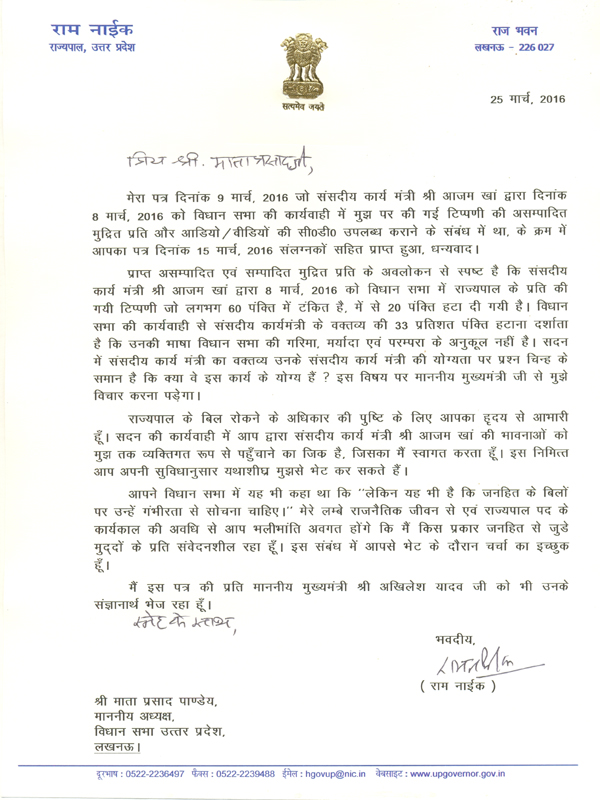 राम नाईक
राज्यपाल, उत्तर प्रदेश
राज भवन
लखनऊ - 226 027
सत्यमेव जयते
25 मार्च, 2016
प्रिय श्री. माताप्रसादजी,
मेरा पत्र दिनांक 9 मार्च, 2016 जो संसदीय कार्य मंत्री श्री आजम खां द्वारा दिनांक
8 मार्च, 2016 को विधान सभा की कार्यवाही में मुझ पर की गई टिप्पणी की असम्पादित
मुद्रित प्रति और आडियो/वीडियों की सी0डी0 उपलब्ध कराने के संबंध में था, के क्रम में
आपका पत्र दिनांक 15 मार्च, 2016 संलग्नकों सहित प्राप्त हुआ, धन्यवाद।
प्राप्त असम्पादित एवं सम्पादित मुद्रित प्रति के अवलोकन से स्पष्ट है कि संसदीय
कार्य मंत्री श्री आजम खां द्वारा 8 मार्च, 2016 को विधान सभा में राज्यपाल के प्रति की
गयी टिप्पणी जो लगभग 60 पंक्ति में टंकित है, में से 20 पंक्ति हटा दी गयी है। विधान
सभा की कार्यवाही से संसदीय कार्यमंत्री के वक्तव्य की 33 प्रतिशत पंक्ति हटाना दर्शाता
है कि उनकी भाषा विधान सभा की गरिमा, मर्यादा एवं परम्परा के अनुकूल नहीं है। सदन
में संसदीय कार्य मंत्री का वक्तव्य उनके संसदीय कार्य मंत्री की योग्यता पर प्रश्न चिन्ह के
समान है कि क्या वे इस कार्य के योग्य हैं ? इस विषय पर माननीय मुख्यमंत्री जी से मुझे
विचार करना पड़ेगा।
राज्यपाल के बिल रोकने के अधिकार की पुष्टि के लिए आपका हृदय से आभारी
हूँ। सदन की कार्यवाही में आप द्वारा संसदीय कार्य मंत्री श्री आजम खां की भावनाओं को
मुझ तक व्यक्तिगत रूप से पहुँचाने का जिक है, जिसका मैं स्वागत करता हूँ। इस निमित्त
आप अपनी सुविधानुसार यथाशीघ्र मुझसे भेट कर सकते हैं।
आपने विधान सभा में यह भी कहा था कि "लेकिन यह भी है कि जनहित के बिलों
पर उन्हें गंभीरता से सोचना चाहिए।" मेरे लम्बे राजनैतिक जीवन से एवं राज्यपाल पद के
कार्यकाल की अवधि से आप भलीभांति अवगत होंगे कि मैं किस प्रकार जनहित से जुडे
मुद्दों के प्रति संवेदनशील रहा हूँ। इस संबंध में आपसे भेट के दौरान चर्चा का इच्छुक
हूँ।
मैं इस पत्र की प्रति माननीय मुख्यमंत्री श्री अखिलेश यादव जी को भी उनके
संज्ञानार्थ भेज रहा हूँ।
स्नेह के साथ,
भवदीय,
राम नाईक
( राम नाईक )
श्री माता प्रसाद पाण्डेय,
माननीय अध्यक्ष,
विधान सभा उत्तर प्रदेश,
लखनऊ।
दूरभाष : 0522-2236497 फैक्स : 0522-2239488 ईमेल : hgovup@nic.in वेबसाइट : www.upgovernor.gov.in